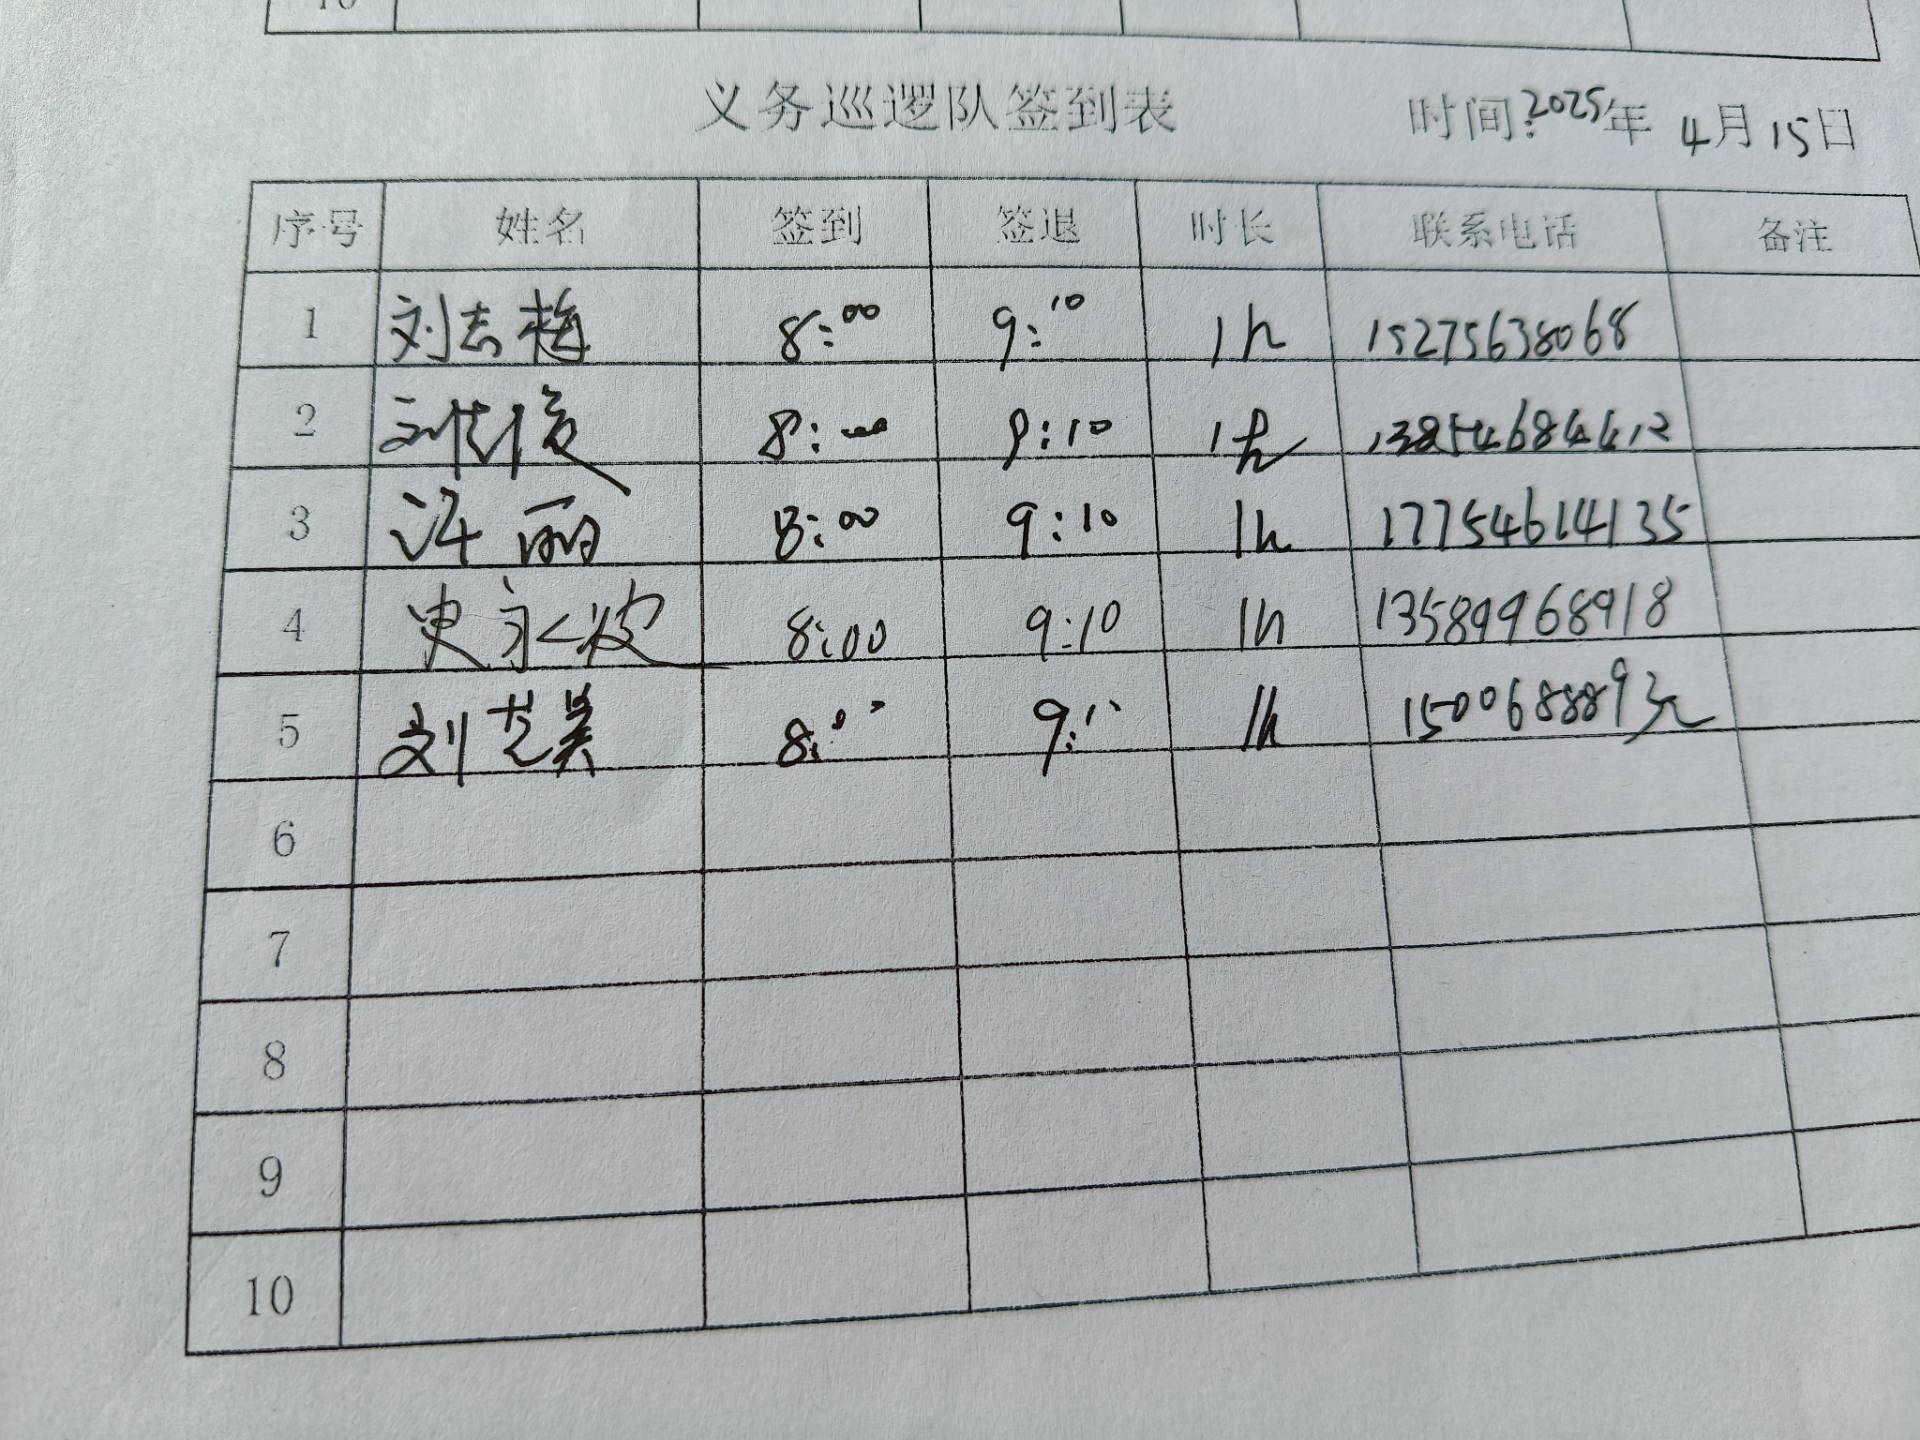 10
义务巡逻队签到表 时间:2025年4月15日
序号 姓名 签到 签退 时长 联系电话 备注
1 刘志梅 8:00 9:10 1h 15275638068
2 刘 8:00 9:10 1h 13854684412
3 许丽 8:00 9:10 1h 17754614135
4 史永波 8:00 9:10 1h 13589968918
5 刘芝美 8:00 9:10 1h
6
7
8
9
10